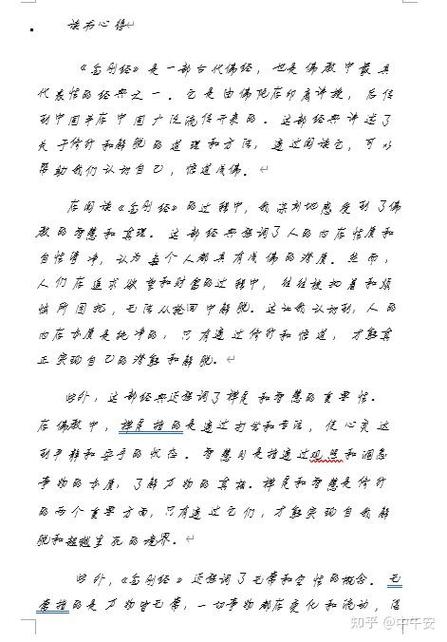 读书心得
《金刚经》是一部古代佛经，也是佛教中最具
代表性的经典之一。它是由佛陀在印度讲授，后传
到中国并在中国广泛流传开来的。这部经典讲述了
关于修行和解脱的道理和方法，通过阅读它，可以
帮助我们认识自己，悟道成佛。
在阅读《金刚经》的过程中，我深刻地感受到了佛
教的智慧和真理。这部经典强调了人的内在性质和
自性清净，认为每个人都具有成佛的潜质。然而，
人们在追求欲望和财富的过程中，往往被执着和烦
恼所困扰，无法从轮回中解脱。这让我认识到，人的
内在本质是纯净的，只有通过修行和悟道，才能真
正实现自己的潜能和解脱。
此外，这部经典还强调了禅定和智慧的重要性。
在佛教中，禅定指的是通过打坐和专注，使心灵达
到平静和安宁的状态。智慧则是指通过观照和洞悉
事物的本质，了解万物的真相。禅定和智慧是修行
的两个重要方面，只有通过它们，才能实现自我解
脱和超越生死的境界。
此外，《金刚经》还强调了无常和空性的概念。无
常指的是万物皆无常，一切事物都在变化和流动，没
知乎 @中午安